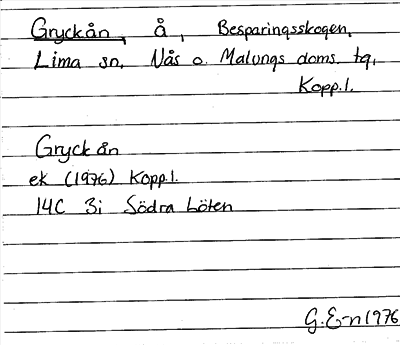 Gryckån, å, Besparingsskogen,
Lima sn. Nås o. Malungs doms. tg,
Kopp.l.
Gryckån
ek (1976) Kopp.l.
14C 3i Södra Löten
G.E-n 1976